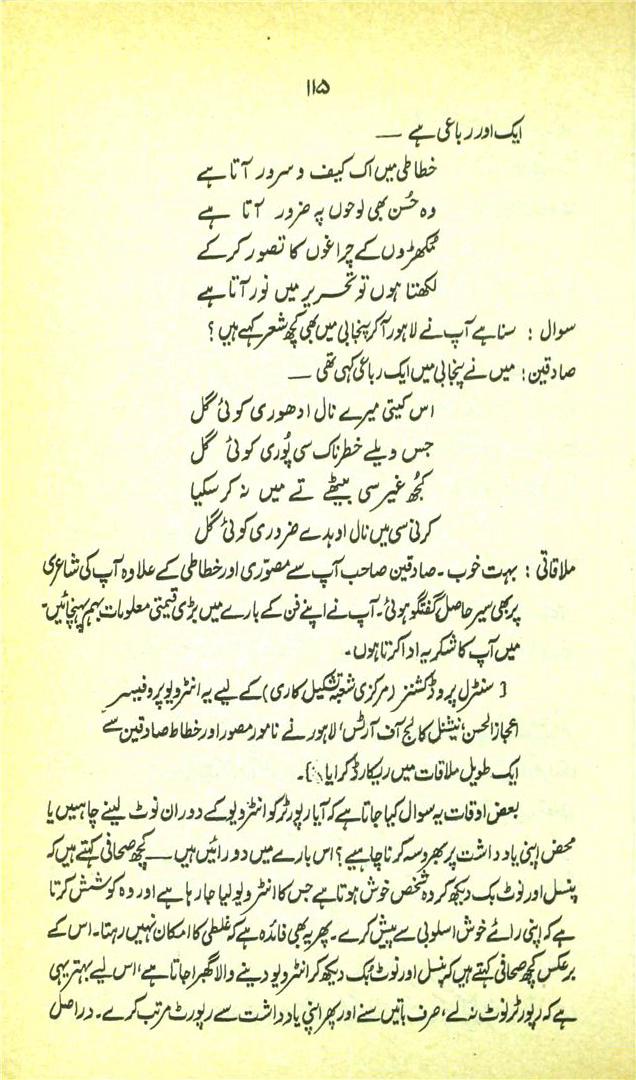 ۱۱۵
ایک اور رباعی ہے —
خطاطی میں اک کیف و سرور آتا ہے
وہ حُسن بھی لوحوں پہ ضرور آتا ہے
مُکھڑوں کے چراغوں کا تصور کر کے
لکھتا ہوں تو تحریر میں نور آتا ہے
سوال : سنا ہے آپ نے لاہور آ کر پنجابی میں بھی کچھ شعر کہے ہیں ؟
صادقین : میں نے پنجابی میں ایک رباعی کہی تھی —
اس کیتی میرے نال ادھوری کوئی گل
جس ویلے خطرناک سی پُوری کوئی گل
کُجھ غیر سی بیٹھے تے میں نہ کر سکیا
کرنی سی میں نال اوہدے ضروری کوئی گل
ملاقاتی : بہت خوب ۔ صادقین صاحب آپ سے مصوّری اور خطاطی کے علاوہ آپ کی شاعری
پر بھی سیر حاصل گفتگو ہوئی ۔ آپ نے اپنے فن کے بارے میں بڑی قیمتی معلومات بہم پہنچائیں ۔
میں آپ کا شکریہ ادا کرتا ہوں ۔
[ سنٹرل پروڈکشنز (مرکزی شعبۂ تشکیل کاری) کے لیے یہ انٹرویو پروفیسر
اعجاز الحسن، نیشنل کالج آف آرٹس، لاہور نے نامور مصور اور خطاط صادقین سے
ایک طویل ملاقات میں ریکارڈ کرایا ]۔
بعض اوقات یہ سوال کیا جاتا ہے کہ آیا رپورٹر کو انٹرویو کے دوران نوٹ لینے چاہییں یا
محض اپنی یادداشت پر بھروسہ کرنا چاہیے ؟ اس بارے میں دو رائیں ہیں — کچھ صحافی کہتے ہیں کہ
پنسل اور نوٹ بک دیکھ کر وہ شخص خوش ہوتا ہے جس کا انٹرویو لیا جا رہا ہے اور وہ کوشش کرتا
ہے کہ اپنی رائے خوش اسلوبی سے پیش کرے ۔ پھر یہ بھی فائدہ ہے کہ غلطی کا امکان نہیں رہتا ۔ اس کے
برعکس کچھ صحافی کہتے ہیں کہ پنسل اور نوٹ بُک دیکھ کر انٹرویو دینے والا گھبرا جاتا ہے ، اس لیے بہتر یہی
ہے کہ رپورٹر نوٹ نہ لے ، صرف باتیں سنے اور پھر اپنی یادداشت سے رپورٹ مرتب کرے ۔ دراصل